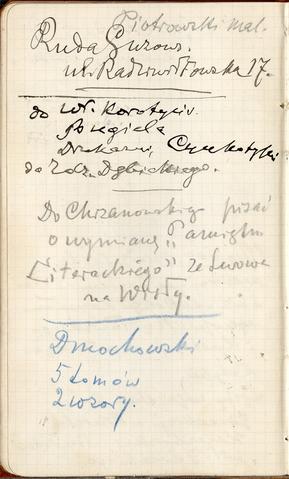 Piotrowski mal.
Ruda Guzow.
ul. Radziwiłłowska 17.
do Wł. Korotyńs.
Drukarni,
do Zdz. Dębickiego.
Do Chrzanowskiego pisać
o wymianę "Pamiętn.
Literackiego" ze Lwowa
na Wisły.
Dmochowski
5 tomów
2 wzory.